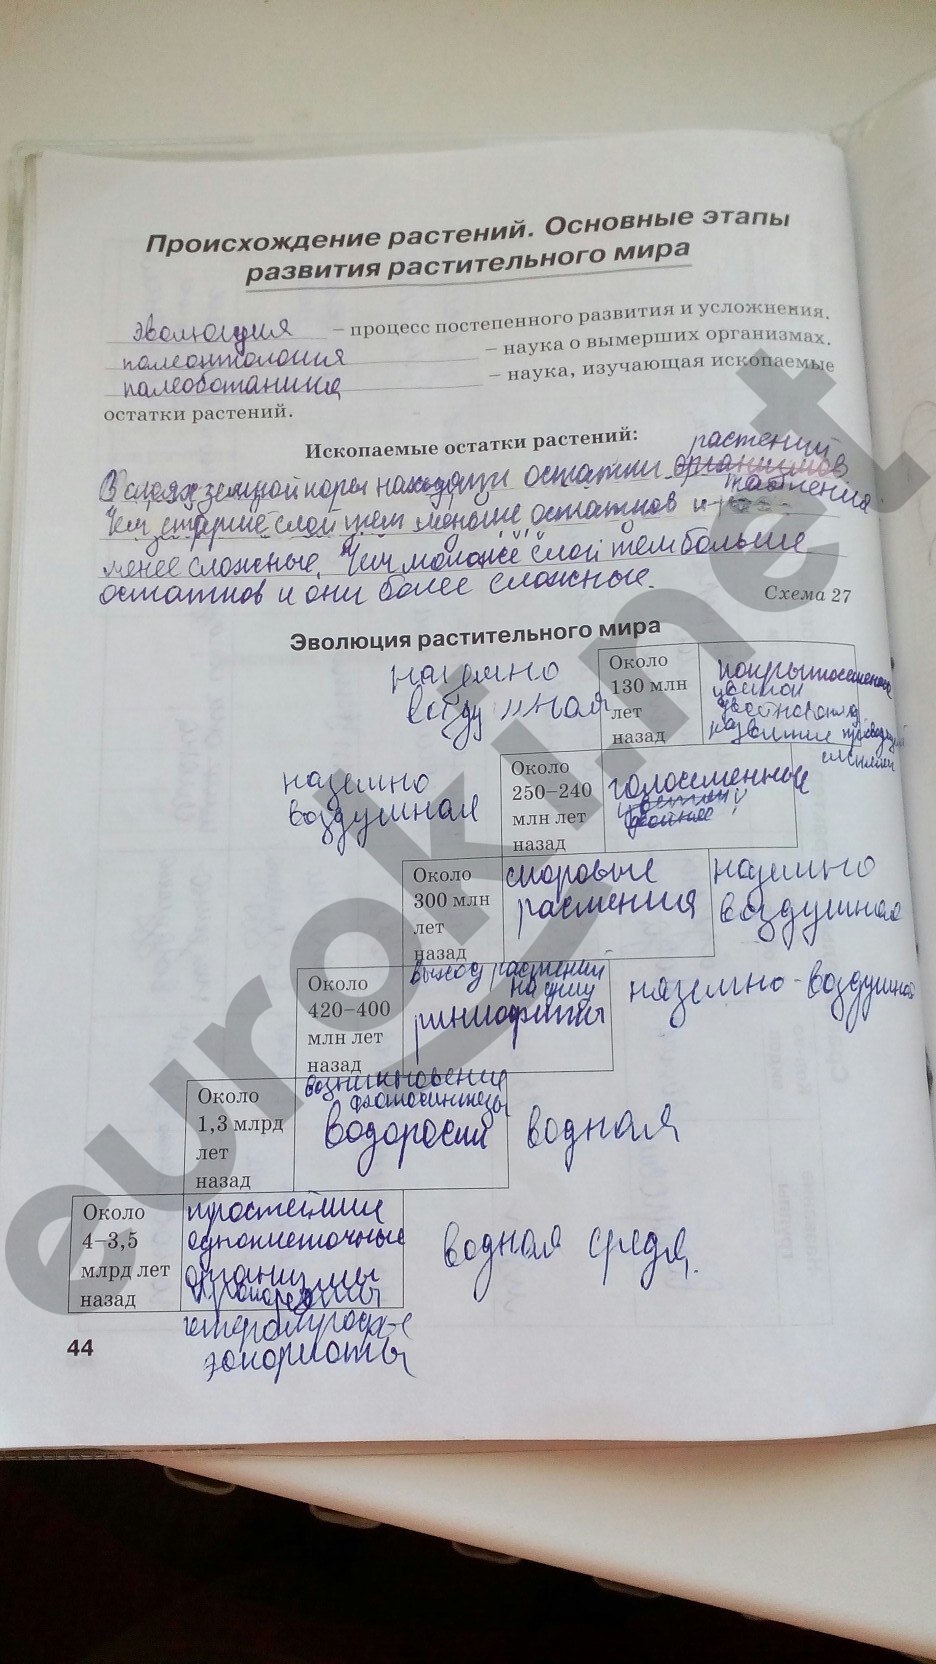 Происхождение растений. Основные этапы
развития растительного мира
эволюция – процесс постепенного развития и усложнения.
палеонтология – наука о вымерших организмах.
палеоботаника – наука, изучающая ископаемые
остатки растений.
Ископаемые остатки растений:
растений
В слоях земной коры находят остатки организмов
Чем старше слой тем меньше остатков и
менее сложные. Чем моложе слой тем больше
остатков и они более сложные.
Схема 27
Эволюция растительного мира
наземно
воздушная
Около
130 млн
лет
назад
покрытосеменные
цветок
развитие проводящей
системы
наземно
воздушная
Около
250–240
млн лет
назад
голосеменные
Около
300 млн
лет
назад
споровые
растения
наземно
воздушная
Около
420–400
млн лет
назад
выход растений
на сушу
риниофиты
наземно-воздушная
Около
1,3 млрд
лет
назад
возникновение
фотосинтеза
водоросли
водная
Около
4–3,5
млрд лет
назад
простейшие
одноклеточные
организмы
водная среда.
эукариоты
44
euroki.net